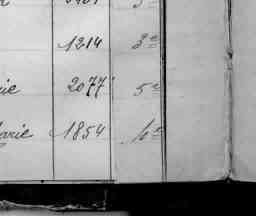 1214 3e
rie 2077 5e
Marie 1854 4e